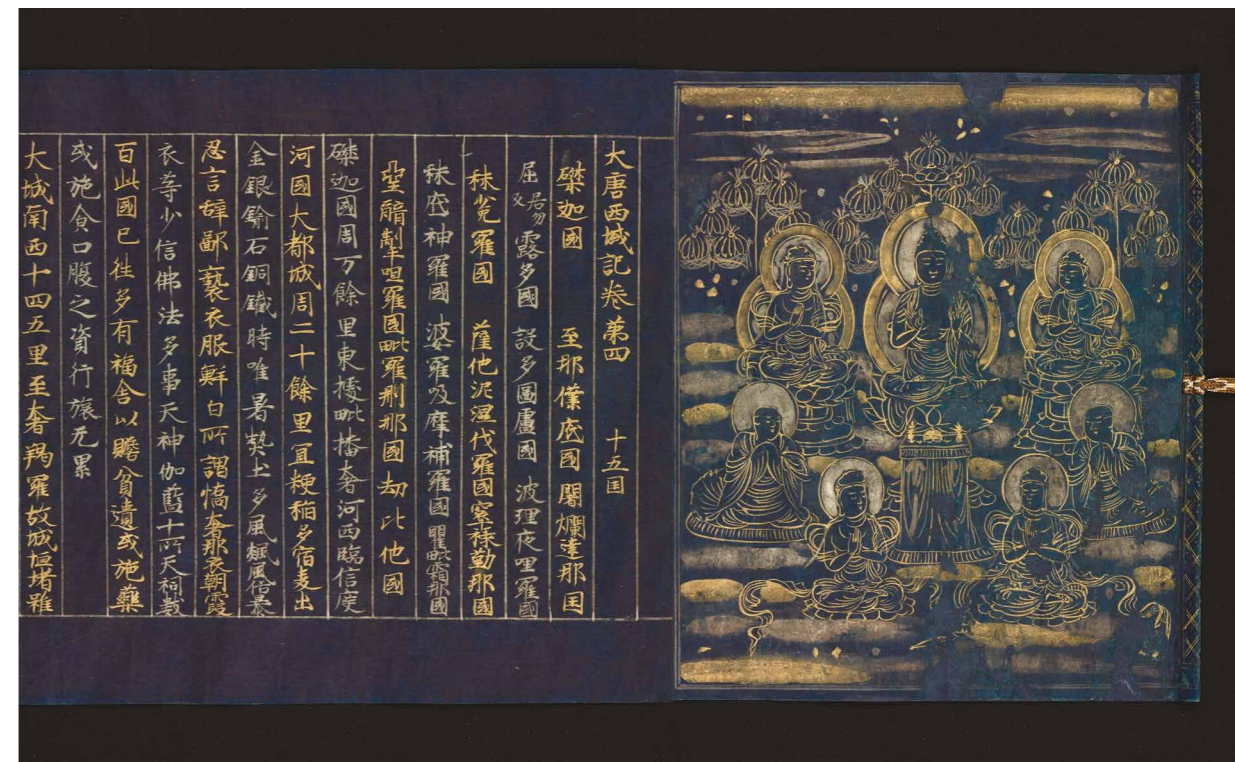 大唐西域記卷第四 十五国
磔迦國 至那僕底國 闍爛達那国
屈居勿反露多國 設多圖盧國 波理夜呾羅國
秣菟羅國 薩他泥濕伐羅國 窣祿勤那國
秣底神羅國 婆羅吸摩補羅國 瞿毗霜那國
堊醯掣呾羅國 毗羅刪那國 劫比他國
磔迦國周万餘里東據毗播奢河西臨信度
河國大都城周二十餘里宜粳稲多宿麦出
金銀鍮石銅鐵時唯暑熱土多風飈風俗暴
惡言辞鄙褻衣服鮮白所謂憍奢耶衣朝霞
衣等少信佛法多事天神伽藍十所天祠數
百此國已往多有福舍以贍貧遺或施藥
或施食口腹之資行旅无累
大城南西十四五里至奢羯羅故城垣堵雖